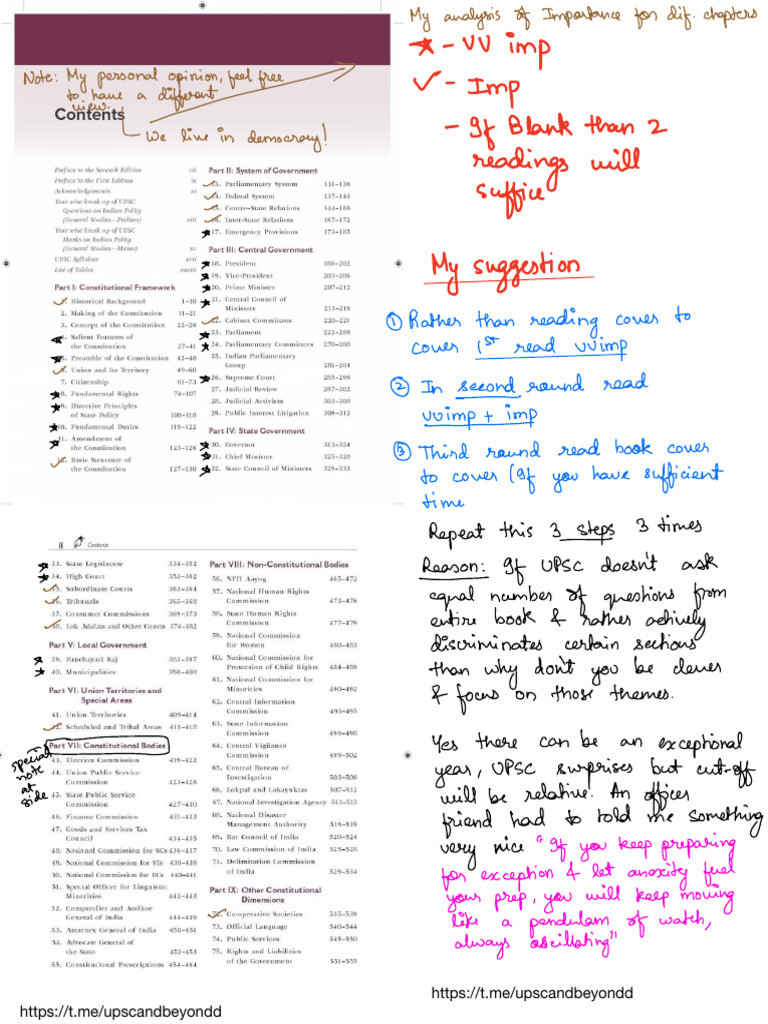 My analysis of Importance for dif. chapters
★ - VV imp
✓ - Imp
- If Blank than 2
readings will
suffice
Note: My personal opinion, feel free
to have a different
view.
We live in democracy!
Contents
Preface to the Seventh Edition vii
Preface to the First Edition ix
Acknowledgements xi
Year wise break up of UPSC
Questions on Indian Polity
(General Studies—Prelims) xiii
Year wise break up of UPSC
Marks on Indian Polity
(General Studies—Mains) xv
UPSC Syllabus xvii
List of Tables xxxiii
Part I: Constitutional Framework
✓1. Historical Background 1–10
2. Making of the Constitution 11–21
3. Concept of the Constitution 22–26
★4. Salient Features of
the Constitution 27–41
★5. Preamble of the Constitution 42–48
✓6. Union and Its Territory 49–60
7. Citizenship 61–73
★8. Fundamental Rights 74–107
★9. Directive Principles
of State Policy 108–118
★10. Fundamental Duties 119–122
★11. Amendment of
the Constitution 123–126
✓12. Basic Structure of
the Constitution 127–130
Part II: System of Government
✓13. Parliamentary System 131–136
✓14. Federal System 137–143
✓15. Centre-State Relations 144–166
✓16. Inter-State Relations 167–172
★17. Emergency Provisions 173–185
Part III: Central Government
★18. President 186–202
★19. Vice-President 203–206
★20. Prime Minister 207–212
★21. Central Council of
Ministers 213–219
✓22. Cabinet Committees 220–221
★23. Parliament 222–269
★24. Parliamentary Committees 270–280
25. Indian Parliamentary
Group 281–284
★26. Supreme Court 285–296
27. Judicial Review 297–302
28. Judicial Activism 303–308
29. Public Interest Litigation 309–312
Part IV: State Government
★30. Governor 313–324
★31. Chief Minister 325–328
★32. State Council of Ministers 329–333
My suggestion
① Rather than reading cover to
cover 1st read vvimp
② In second round read
vvimp + imp
③ Third round read book cover
to cover (If you have sufficient
time
Repeat this 3 steps 3 times
Reason: If UPSC doesn't ask
equal number of questions from
entire book & rather actively
discriminates certain sections
than why don't you be clever
& focus on those themes.
Yes there can be an exceptional
year, UPSC surprises but cut-off
will be relative. An officer
friend had to told me something
very nice "If you keep preparing
for exception & let anoxity fuel
your prep, you will keep moving
like a pendulam of watch,
always oscillating"
https://t.me/upscandbeyondd
ii Contents
★33. State Legislature 334–352
★34. High Court 353–362
✓35. Subordinate Courts 363–364
✓36. Tribunals 365–368
37. Consumer Commissions 369–373
✓38. Lok Adalats and Other Courts 374–382
Part V: Local Government
★39. Panchayati Raj 383–397
★40. Municipalities 398–408
Part VI: Union Territories and
Special Areas
41. Union Territories 409–414
✓42. Scheduled and Tribal Areas 415–418
Part VII: Constitutional Bodies
★ special
note
at
side
43. Election Commission 419–422
44. Union Public Service
Commission 423–426
45. State Public Service
Commission 427–430
46. Finance Commission 431–433
47. Goods and Services Tax
Council 434–435
48. National Commission for SCs 436–437
49. National Commission for STs 438–439
50. National Commission for BCs 440–441
51. Special Officer for Linguistic
Minorities 442–443
52. Comptroller and Auditor
General of India 444–449
53. Attorney General of India 450–451
54. Advocate General of
the State 452–453
55. Constitutional Prescriptions 454–464
Part VIII: Non-Constitutional Bodies
56. NITI Aayog 465–472
57. National Human Rights
Commission 473–476
58. State Human Rights
Commission 477–479
59. National Commission
for Women 480–483
60. National Commission for
Protection of Child Rights 484–489
61. National Commission for
Minorities 490–492
62. Central Information
Commission 493–495
63. State Information
Commission 496–498
64. Central Vigilance
Commission 499–502
65. Central Bureau of
Investigation 503–506
66. Lokpal and Lokayuktas 507–512
67. National Investigation Agency 513–515
68. National Disaster
Management Authority 516–519
69. Bar Council of India 520–524
70. Law Commission of India 525–528
71. Delimitation Commission
of India 529–534
Part IX: Other Constitutional
Dimensions
✓72. Co-operative Societies 535–539
73. Official Language 540–544
74. Public Services 545–550
75. Rights and Liabilities
of the Government 551–555
https://t.me/upscandbeyondd